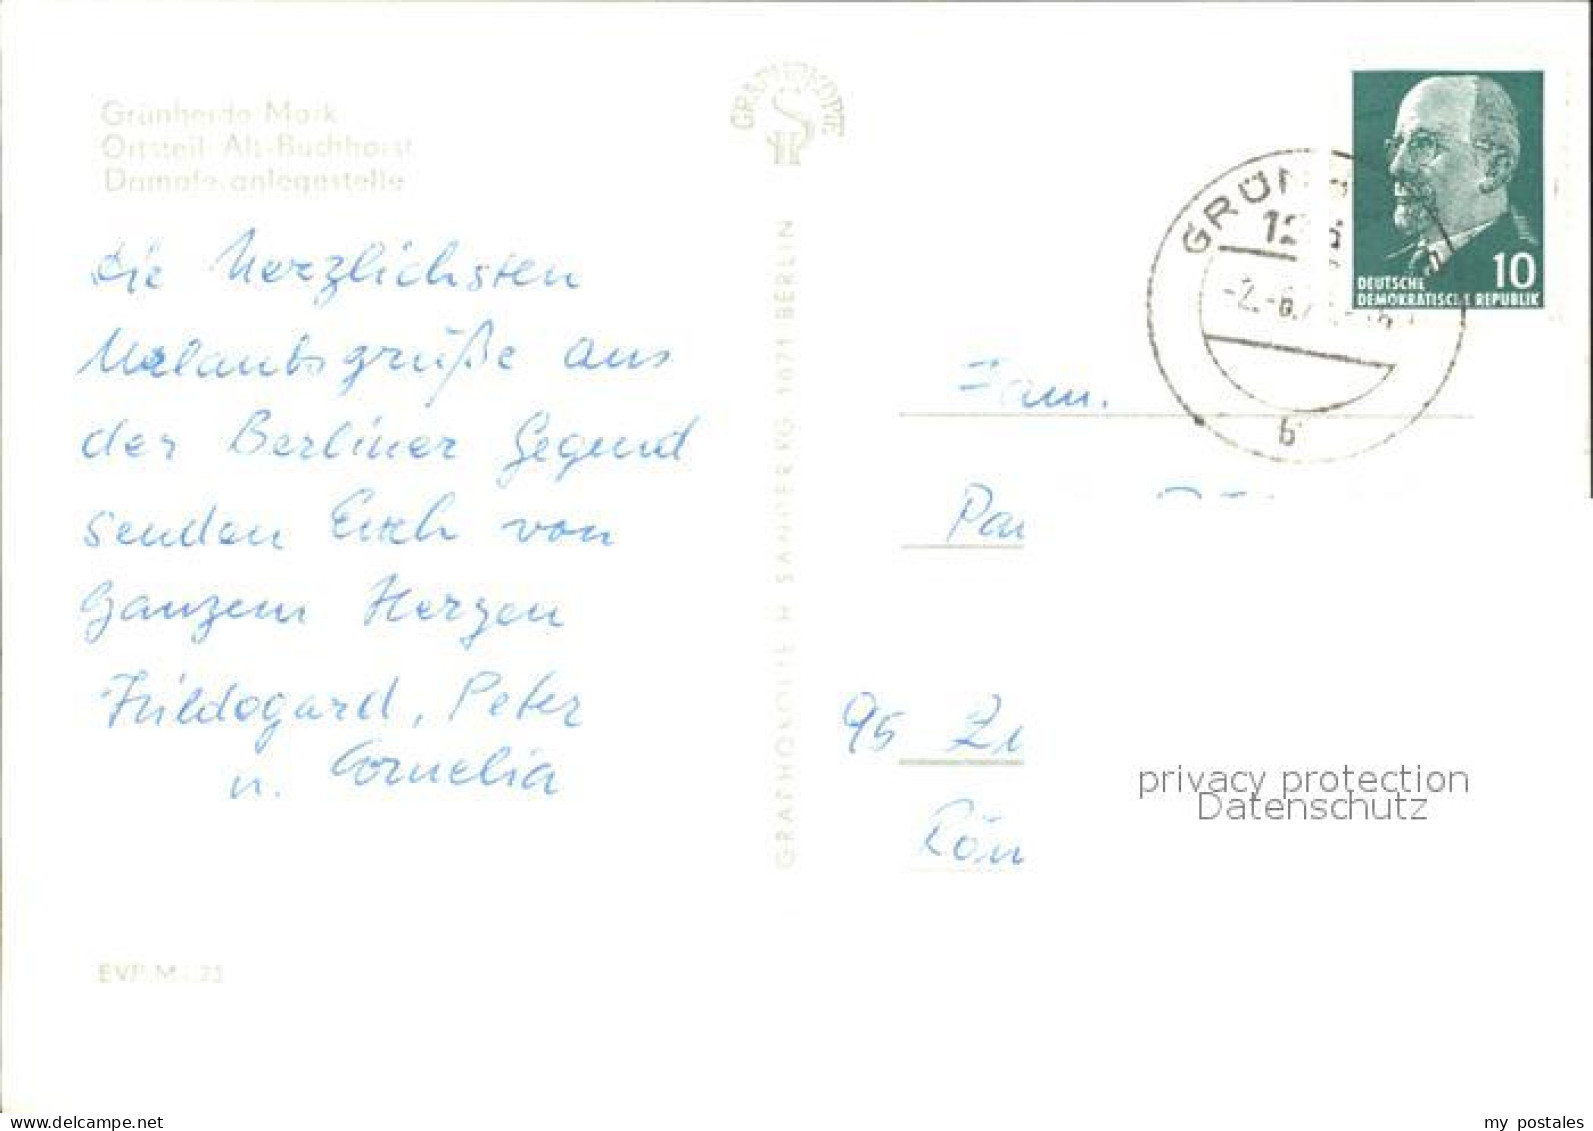 Grünheide Mark
Ortsteil Alt-Buchhorst
Dampferanlegestelle
Die Herzlichsten
Urlaubsgrüße aus
der Berliner Gegend
senden Euch von
Ganzem Herzen
Hildegard, Peter
u. Cornelia
EVP M -.25
GRAPHOKOPIE
GRAPHOKOPIE H SANDER KG 1071 BERLIN
GRÜN
-2.-6.7
b
10
DEUTSCHE
DEMOKRATISCHE REPUBLIK
Fam.
95
privacy protection
Datenschutz
www.delcampe.net
my_postales